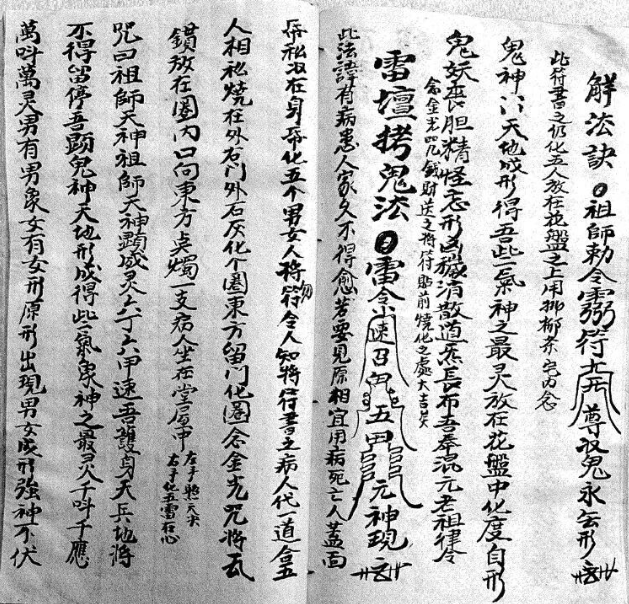 解法訣 祖師勅令 符 尊收鬼永無形
此符書之仍化五人放在花盤之上用楊柳条 念
鬼神 天地成形得吾此氣神之最灵放在花盤中化度自形
鬼妖喪胆精怪忘形凶穢消散道炁長布吾奉混元老祖律令
念金光咒錢財送之将符貼前燒化之處大吉矣
雷壇拷鬼法 雷令 速 五 元神現
此法譚有病患人家久不得愈若要見原相宜用病死亡人蓋面
帋私收在身帋化五个男女人将符勿令人知将符書之病人代一道合五
人相祕燒在外右門外石灰化个圈東方留門化圈念金光咒将瓦
鏆放在圈内口向東方点燭一支病人坐在堂屋中
左手
右手化五雷右心
咒曰祖師天神祖師天神顕威灵六丁六甲速吾護身天兵地将
不得留停吾顕鬼神天地形成得此氣象神之最灵千叫千應
萬叫萬灵男有男象女有女形原形出現男女成形強神不伏